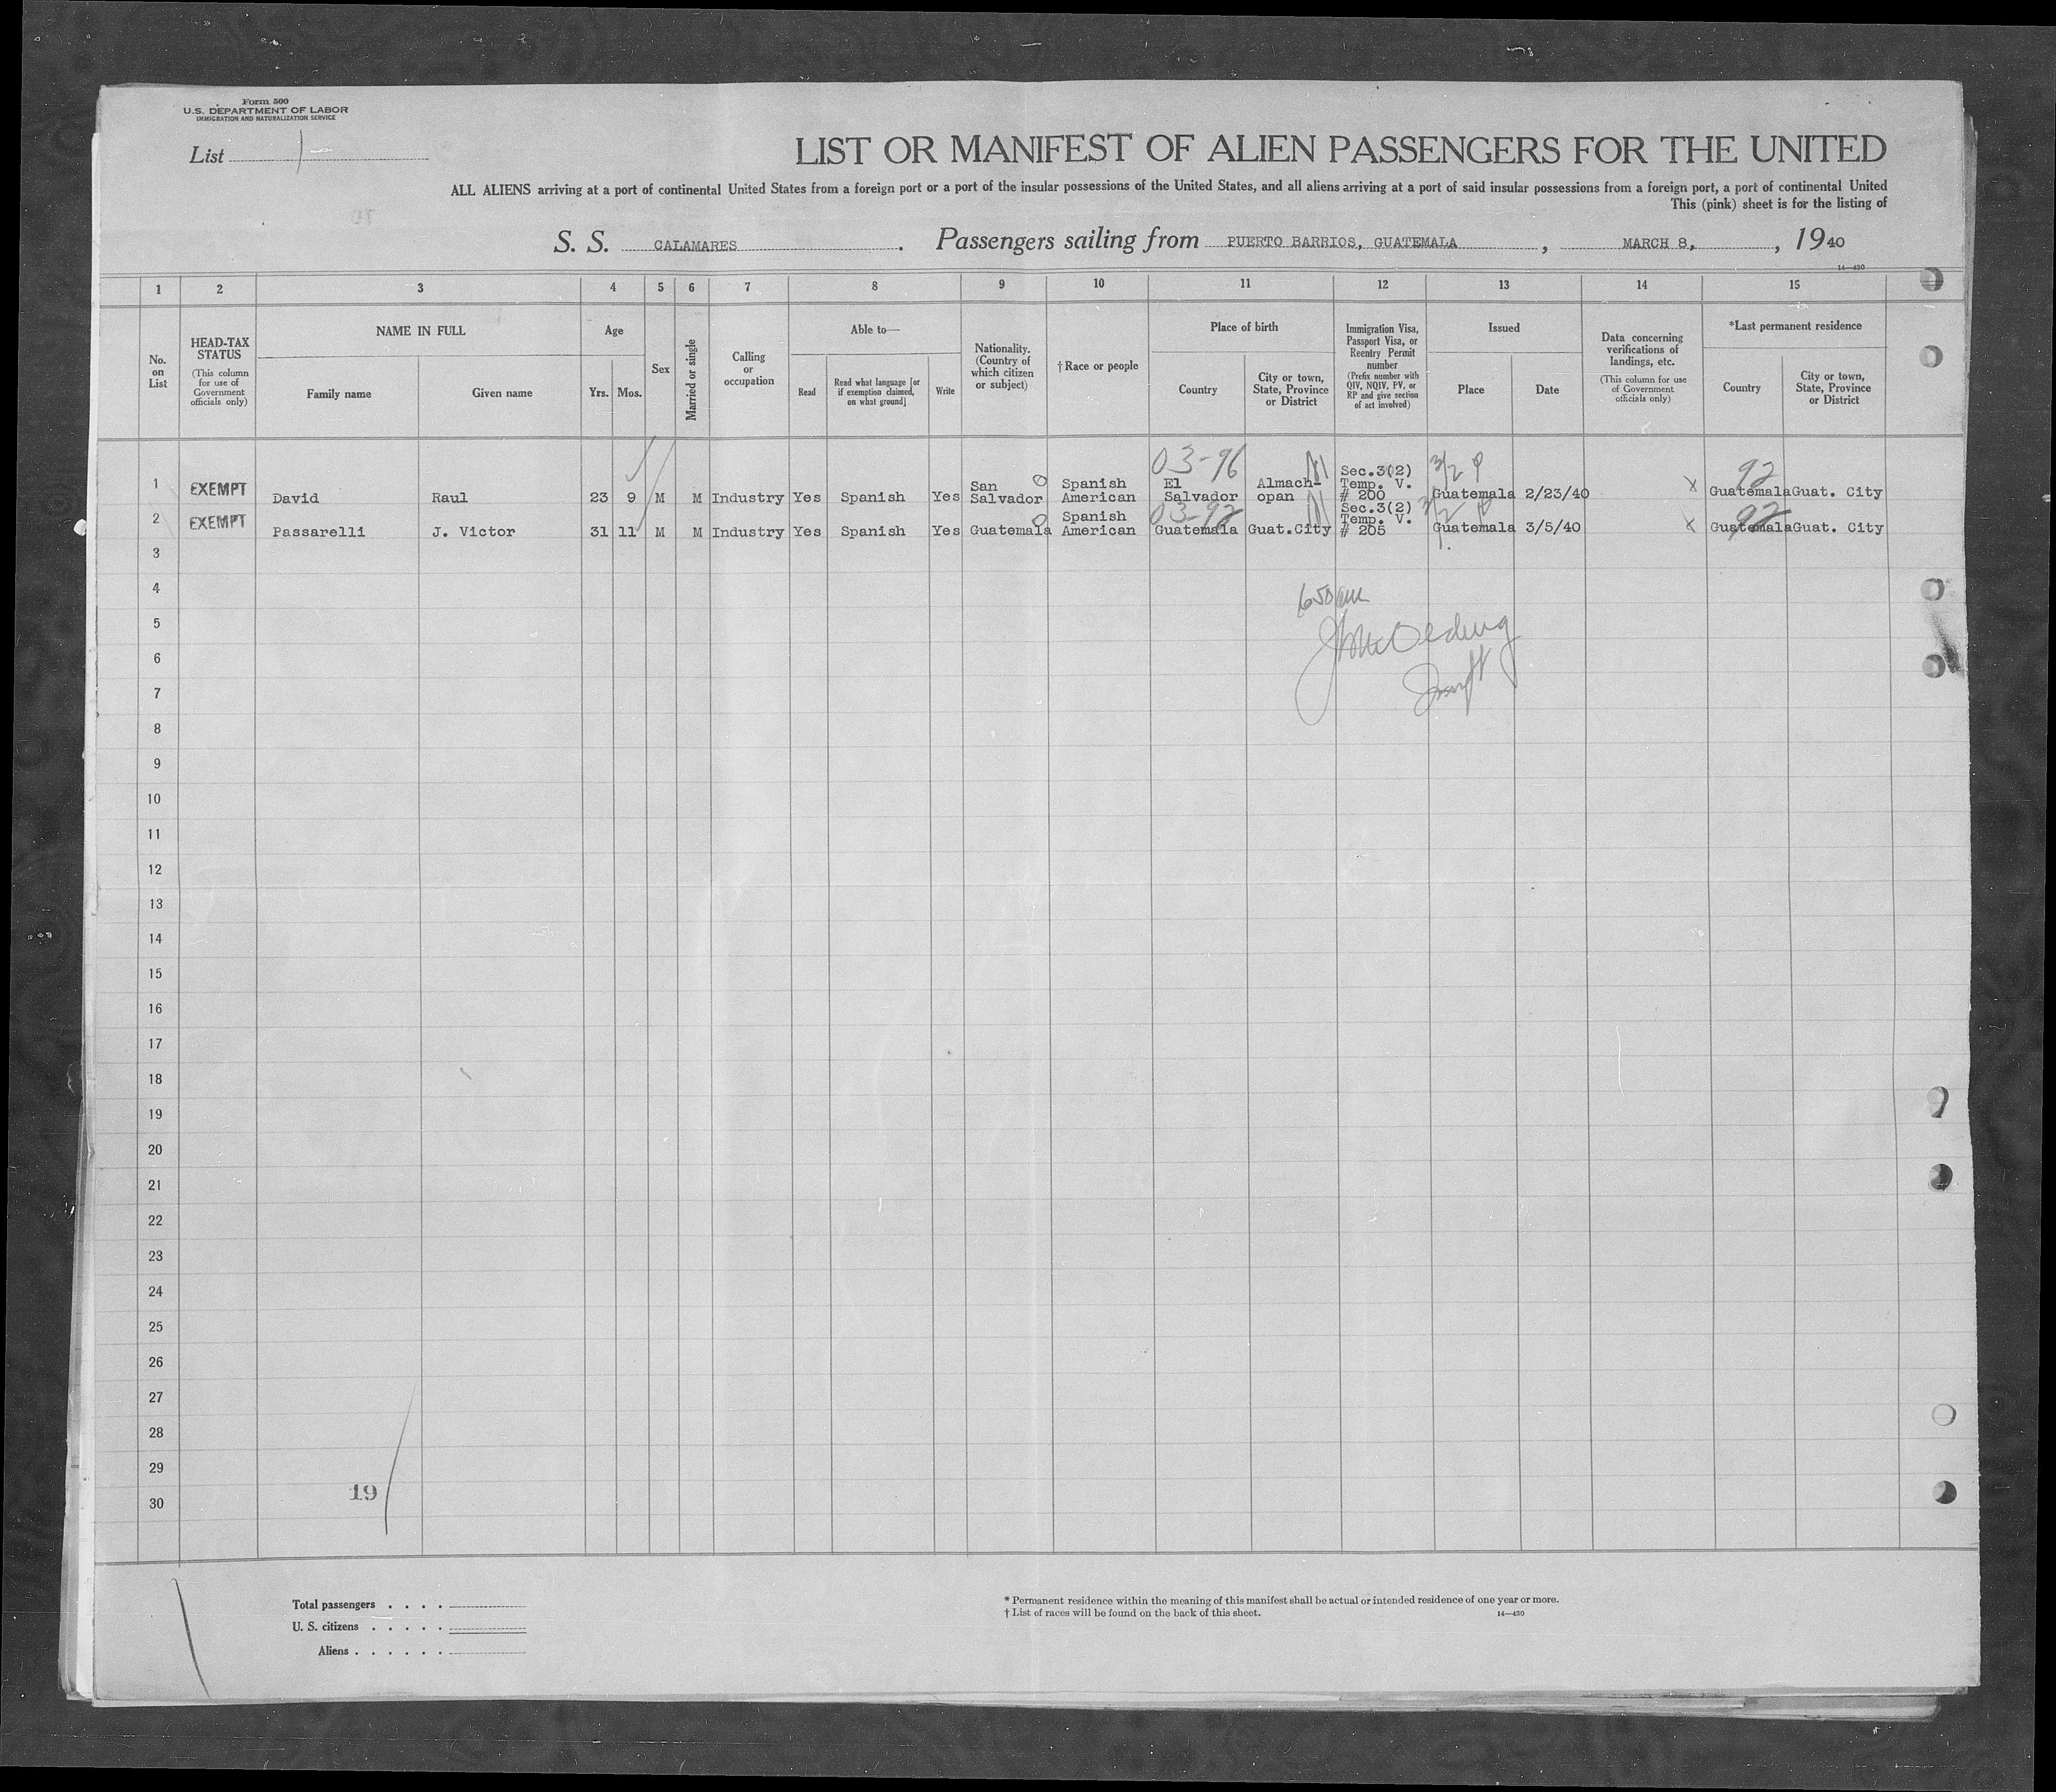 Form 500
U.S. DEPARTMENT OF LABOR
IMMIGRATION AND NATURALIZATION SERVICE
List 1
LIST OR MANIFEST OF ALIEN PASSENGERS FOR THE UNITED
ALL ALIENS arriving at a port of continental United States from a foreign port or a port of the insular possessions of the United States, and all aliens arriving at a port of said insular possessions from a foreign port, a port of continental United
This (pink) sheet is for the listing of
S. S. CALAMARES. Passengers sailing from PUERTO BARRIOS, GUATEMALA, MARCH 8, 1940
14—430
1 2 3 4 5 6 7 8 9 10 11 12 13 14 15
No. on List
HEAD-TAX STATUS (This column for use of Government officials only)
NAME IN FULL
Family name
Given name
Age
Yrs. Mos.
Sex
Married or single
Calling or occupation
Able to—
Read
Read what language [or if exemption claimed, on what ground]
Write
Nationality. (Country of which citizen or subject)
† Race or people
Place of birth
Country
City or town, State, Province or District
Immigration Visa, Passport Visa, or Reentry Permit number (Prefix number with QIV, NQIV, PV, or RP and give section of act involved)
Issued
Place
Date
Data concerning verifications of landings, etc. (This column for use of Government officials only)
*Last permanent residence
Country
City or town, State, Province or District
03-96 3/2 P 92
1 EXEMPT David Raul 23 9 M M Industry Yes Spanish Yes San Salvador Spanish American El Salvador Almach-opan Sec.3(2) Temp. V. # 200 Guatemala 2/23/40 X Guatemala Guat. City
03-92 92
2 EXEMPT Passarelli J. Victor 31 11 M M Industry Yes Spanish Yes Guatemala Spanish American Guatemala Guat.City Sec.3(2) Temp. V. # 205 Guatemala 3/5/40 X Guatemala Guat. City
3
4
650 am
5
6
7
8
9
10
11
12
13
14
15
16
17
18
19
20
21
22
23
24
25
26
27
28
29
19
30
Total passengers . . . .
U. S. citizens . . . . .
Aliens . . . . . .
* Permanent residence within the meaning of this manifest shall be actual or intended residence of one year or more.
† List of races will be found on the back of this sheet. 14—430